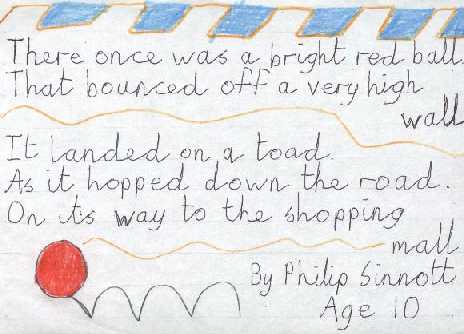 There once was a bright red ball
That bounced off a very high
wall
It landed on a toad.
As it hopped down the road.
On its way to the shopping
mall
By Philip Sinnott
Age 10